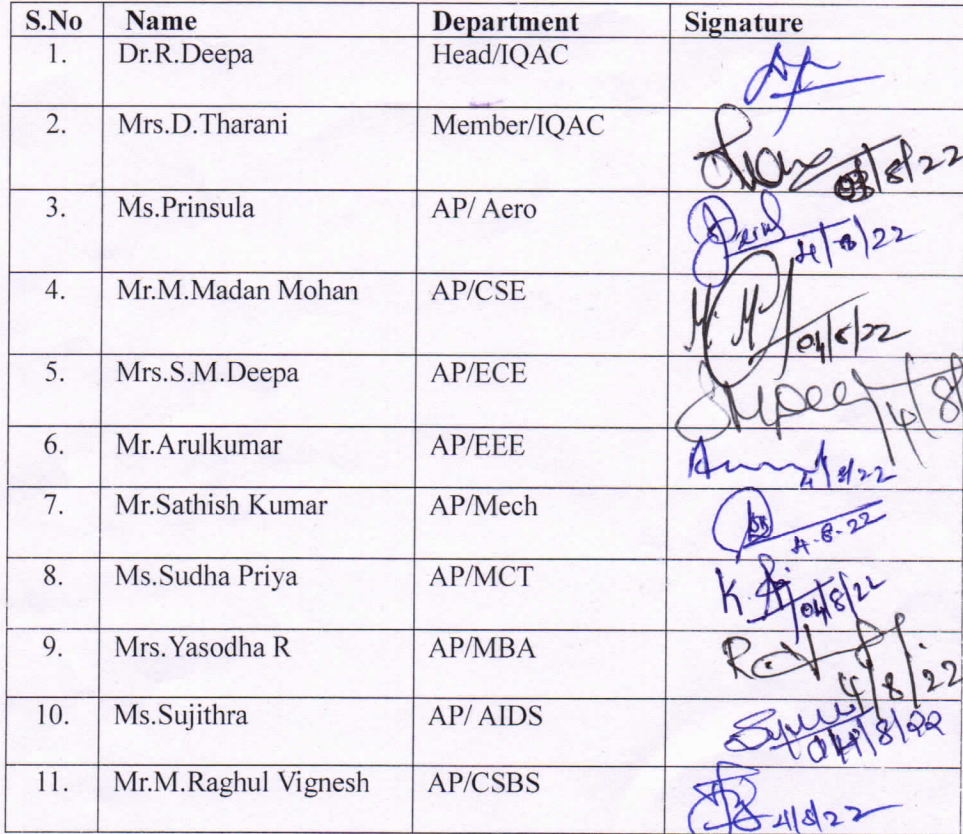 S.No Name Department Signature
1. Dr.R.Deepa Head/IQAC
2. Mrs.D.Tharani Member/IQAC 03/8/22
3. Ms.Prinsula AP/ Aero 4/8/22
4. Mr.M.Madan Mohan AP/CSE 04/8/22
5. Mrs.S.M.Deepa AP/ECE 4/8
6. Mr.Arulkumar AP/EEE 4/8/22
7. Mr.Sathish Kumar AP/Mech 4-8-22
8. Ms.Sudha Priya AP/MCT 04/8/22
9. Mrs.Yasodha R AP/MBA 4/8/22
10. Ms.Sujithra AP/ AIDS 04/8/22
11. Mr.M.Raghul Vignesh AP/CSBS 4/8/22